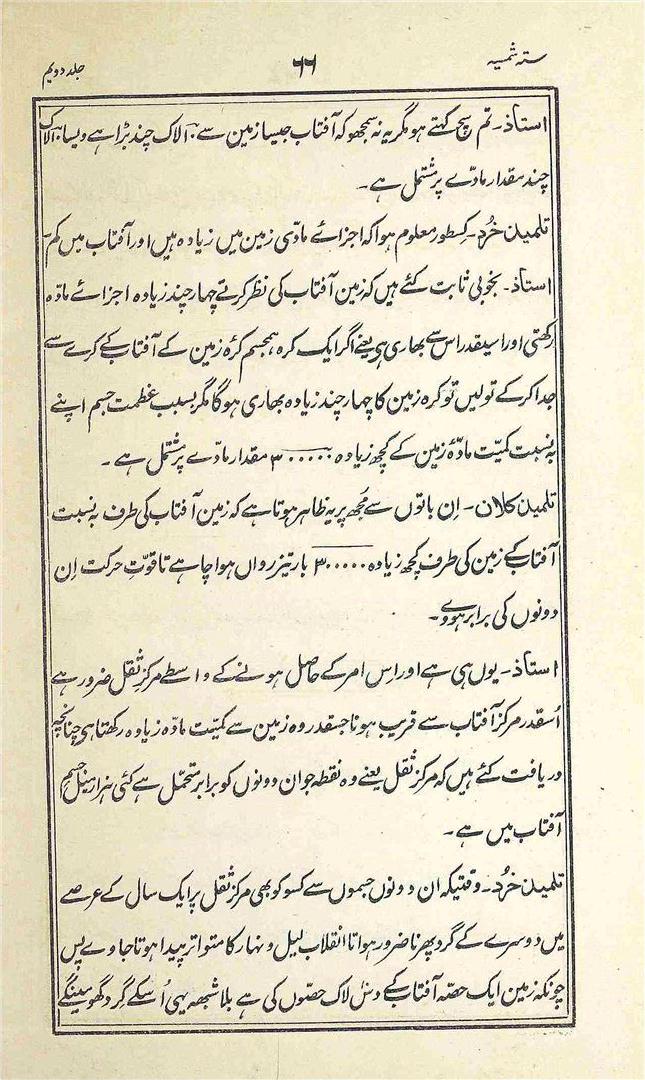 ستہ شمسیہ ۶۶ جلد دویم
استاذ۔ تم سچ کہتے ہو مگر یہ نہ سمجھو کہ آفتاب جیسا زمین سے الاک چند بڑا ہے ویسا الاک
چند مقدار مادّے پر مشتمل ہے۔
تلمیذ خُرد۔ کسطور معلوم ہوا کہ اجزائے مادّی زمین میں زیادہ ہیں اور آفتاب میں کم۔
استاذ۔ بخوبی ثابت کئے ہیں کہ زمین آفتاب کی نظر کرتے چہار چند زیادہ اجزائے مادّہ
رکھتی اور اسیقدر اس سے بھاری ہی یعنے اگر ایک کرہ ہمجسم کرۂ زمین کے آفتاب کے کرے سے
جدا کر کے تولیں تو کرہ زمین کا چہار چند زیادہ بھاری ہوگا مگر بسبب عظمت جسم اپنے
بہ نسبت کمیّت مادّۂ زمین کے کچھ زیادہ ۳۰۰۰۰۰ مقدار مادّے پر مشتمل ہے۔
تلمیذ کلان۔ اِن باتوں سے مُجھ پر یہ ظاہر ہوتا ہے کہ زمین آفتاب کی طرف بہ نسبت
آفتاب کے زمین کی طرف کچھ زیادہ ۳۰۰۰۰۰ بار تیز رواں ہوا چاہے تا قوّتِ حرکت اِن
دونوں کی برابر ہووے۔
استاذ۔ یوں ہی ہے اور اِس امر کے حاصل ہونے کے واسطے مرکز ثقل ضرور ہے
اُسقدر مرکز آفتاب سے قریب ہونا جسقدر وہ زمین سے کمیّت مادّہ زیادہ رکھتا ہی چنانچہ
دریافت کئے ہیں کہ مرکز ثقل یعنے وہ نقطہ جو ان دونوں کو برابر متحمّل ہے کئی ہزار میل جسم
آفتاب میں ہے۔
تلمیذ خُرد۔ وقتیکہ ان دونوں جسموں سے کسو کو بھی مرکز ثقل پر ایک سال کے عرصے
میں دوسرے کے گرد پھرنا ضرور ہوا تا انقلاب لیل و نہار کا متواتر پیدا ہوتا جاوے پس
چونکہ زمین ایک حصّہ آفتاب کے دسْ لاک حصّوں کی ہے بلا شبھہ یہی اُسکے گرد گھومینگے